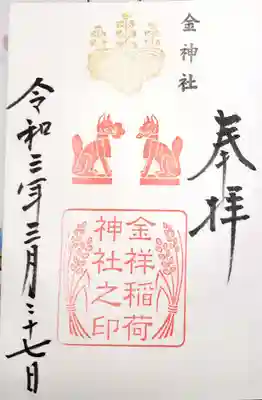 奉拝
金神社
金祥稲荷
神社之印
令和三年三月二十七日